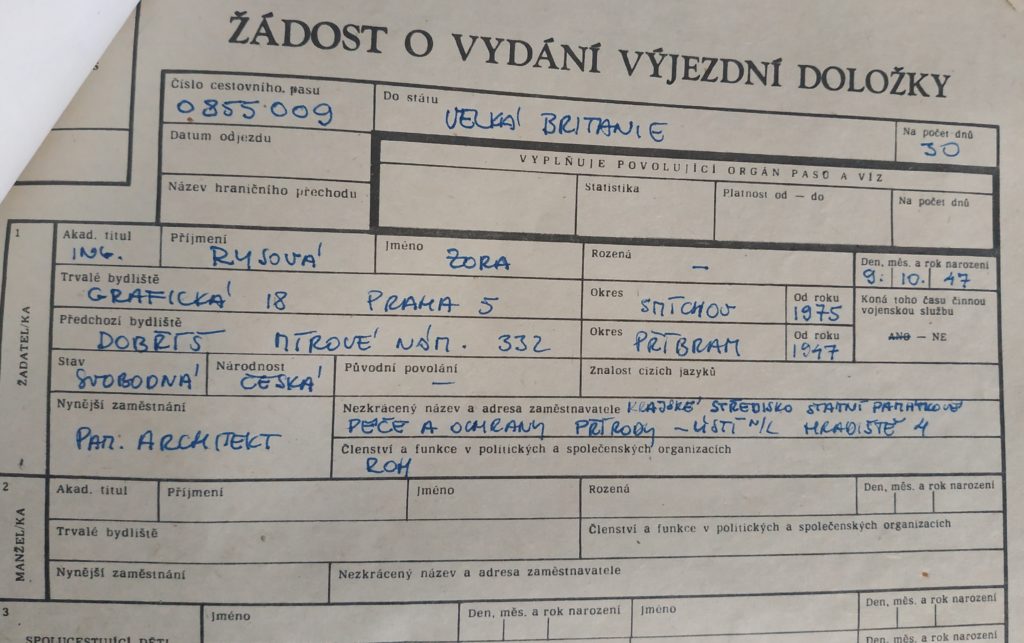 ŽÁDOST O VYDÁNÍ VÝJEZDNÍ DOLOŽKY
Číslo cestovního pasu
0855009
Do státu
VELKÁ BRITANIE
Na počet dnů
30
Datum odjezdu
VYPLŇUJE POVOLUJÍCÍ ORGÁN PASŮ A VÍZ
Název hraničního přechodu
Statistika
Platnost od — do
Na počet dnů
1
ŽADATEL/KA
Akad. titul
ING.
Příjmení
RYSOVÁ
Jméno
ZORA
Rozená
—
Den, měs. a rok narození
9. 10. 47
Trvalé bydliště
GRAFICKÁ 18 PRAHA 5
Okres
SMÍCHOV
Od roku
1975
Koná toho času činnou
vojenskou službu
ANO — NE
Předchozí bydliště
DOBŘÍŠ MÍROVÉ NÁM. 332
Okres
PŘÍBRAM
Od roku
1947
Stav
SVOBODNÁ
Národnost
ČESKÁ
Původní povolání
—
Znalost cizích jazyků
Nynější zaměstnání
PAM. ARCHITEKT
Nezkrácený název a adresa zaměstnavatele KRAJSKÉ STŘEDISKO STÁTNÍ PAMÁTKOVÉ
PÉČE A OCHRANY PŘÍRODY - ÚSTÍ N/L HRADIŠTĚ 4
Členství a funkce v politických a společenských organizacích
ROH
2
MANŽEL/KA
Akad. titul
Příjmení
Jméno
Rozená
Den, měs. a rok narození
Trvalé bydliště
Členství a funkce v politických a společenských organizacích
Nynější zaměstnání
Nezkrácený název a adresa zaměstnavatele
3
SPOLUCESTUJÍCÍ DĚTI
Jméno
Den, měs. a rok narození
Jméno
Den, měs. a rok narození